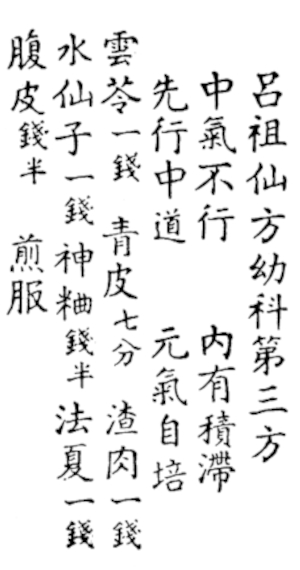 呂祖仙方幼科第三方
中氣不行　內有積滯
先行中道　元氣自培
雲苓一錢　青皮七分　渣肉一錢
水仙子一錢神粬錢半法夏一錢
腹皮錢半　煎服